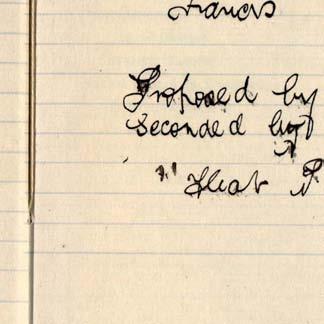 Francis
Proposed by
Seconded by
" That